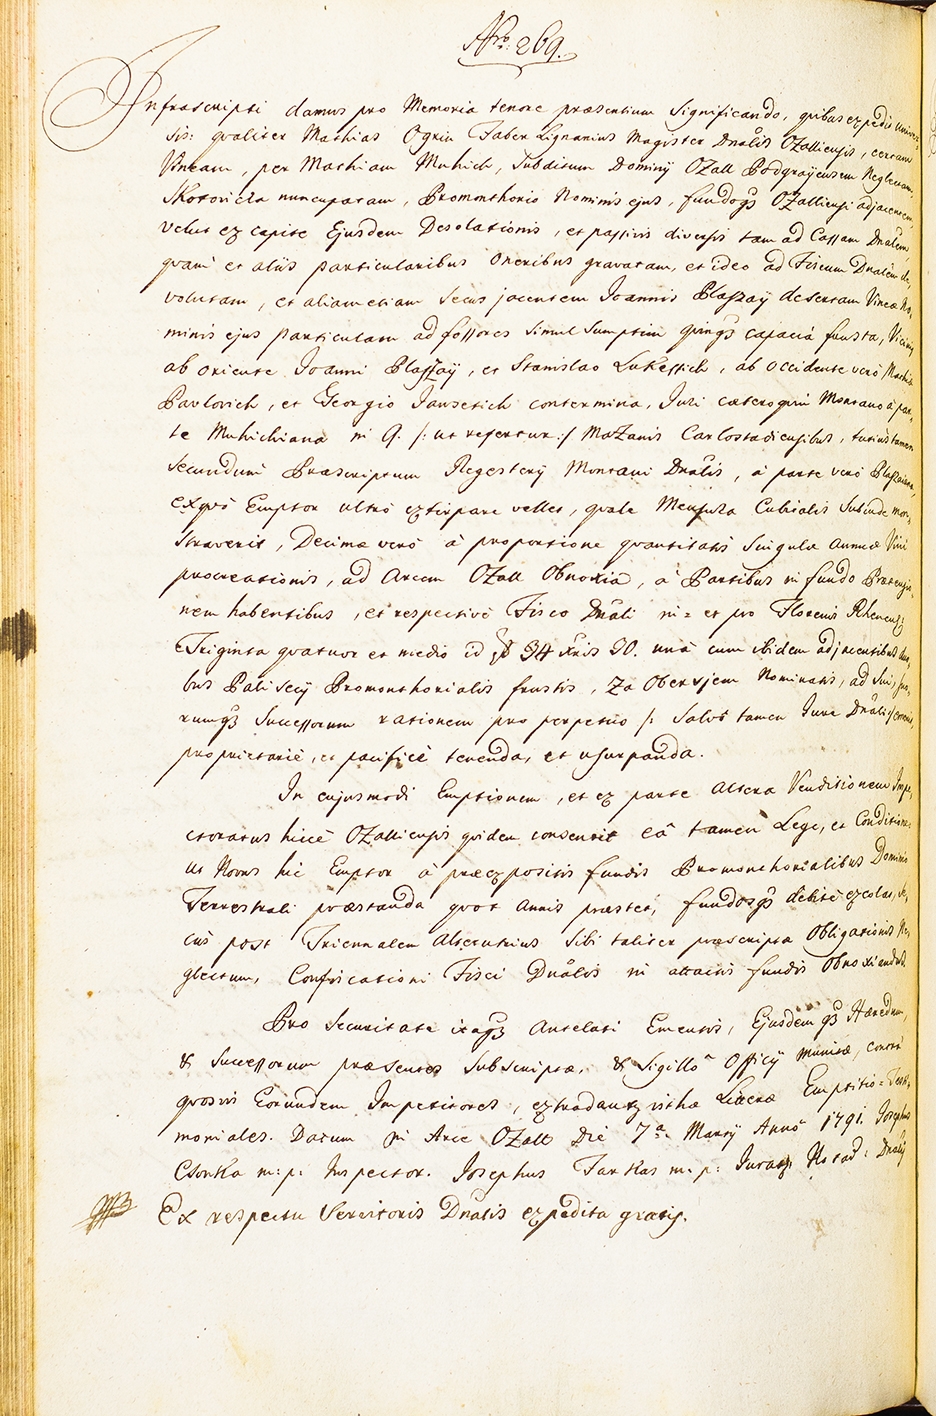 Nro: 269.
Infrascripti damus pro Memoria tenore præsentium significando, quibus expedit univer-
sis: qualiter Mathias Ogriu Faber Lignarius Magister Dnalis Ozalliensis, certam
Vineam, per Mathiam Muhich, Subditum Dominii Ozall Podgrajensem Neglectam,
Skotovicza nuncupatam, Promonthorio Nominis ejus, fundoq3 Ozalliensi adjacentem,
velut ex capite Ejusdem Desolationis, et passivis diversis tam ad Cassam Dnalem
quam et aliis particularibus Oneribus gravatam, et ideo ad Fiscum Dnalem de-
volutam, et aliam etiam secus jacentem Joannis Plassaÿ desertam Vineæ No-
minis ejus Particulam ad fossores simul sumptim quinq3 capacia frusta, Vicinis
ab oriente Joanni Plassaÿ, et Stanislao Lukessich, ab occidente verò Mathiæ
Pavlovich, et Georgio Jansetich contermina, Juri cæteroquin Montano à par-
te Muhichiana in 9. /: ut refertur :/ Mazanis Carlostadiensibus, tutius tamen
secundum Præscriptum Regesterÿ Montani Dnalis, à parte verò Plassaiana,
exquò Emptor ultrò extirpare vellet, quale Mensura Cubialis subinde mon-
straverit, Decimæ verò à proportione quantitatis singulæ annuæ Vini
procreationis, ad Arcem Ozall Obnoxia, à Partibus in fundo Prætensio-
nem habentibus, et respectivè Fisco Dnali in = et pro Florenis Rhenens:
Triginta quatuor et medio id est 34 xris 30. unà cum ibidem adjacentibus duo-
bus Palisecÿ Promonthorialis frustis, Za Obersjem Nominatis, ad sui, suo-
rumq3 Successorum rationem pro perpetuo /: Salvò tamen Jure Dnali :/ emerit,
proprietariè, et pacificè tenenda, et usurpanda.
In cujusmodi Emptionem, et ex parte altera Venditionem Inspe-
ctoratus hicce Ozalliensis quidem consentit eâ tamen Lege, et Conditione
ut Novus hic Emptor à præexpositis fundis Promonthorialibus Dominio
Terrestrali præstanda quot Annis præstet, fundosq3 debitè excolat, se-
cus post Triennalem Alterutrius sibi taliter præscriptæ Obligationis Ne-
glectum, Confiscationi Fisci Dnalis in attactis fundis Obnoxiandus.
Pro Securitate itaq3 Antelati Ementis, Ejusdemq3 Hæredum,
& Successorum præsentes subscriptæ, & Sigillô Officÿ munitæ, contra
quosvis Eorundem Impetitores, extradantur isthæ Literæ Emptitio-Testi-
moniales. Datum in Arce Ozall Die 7a Martÿ Annô 1791. Josephus
Csonka m: p: Inspector. Josephus Farkas m: p: Jurat: Notar: Dnalis
Ex respectu Servitoris Dnalis expedita gratis.